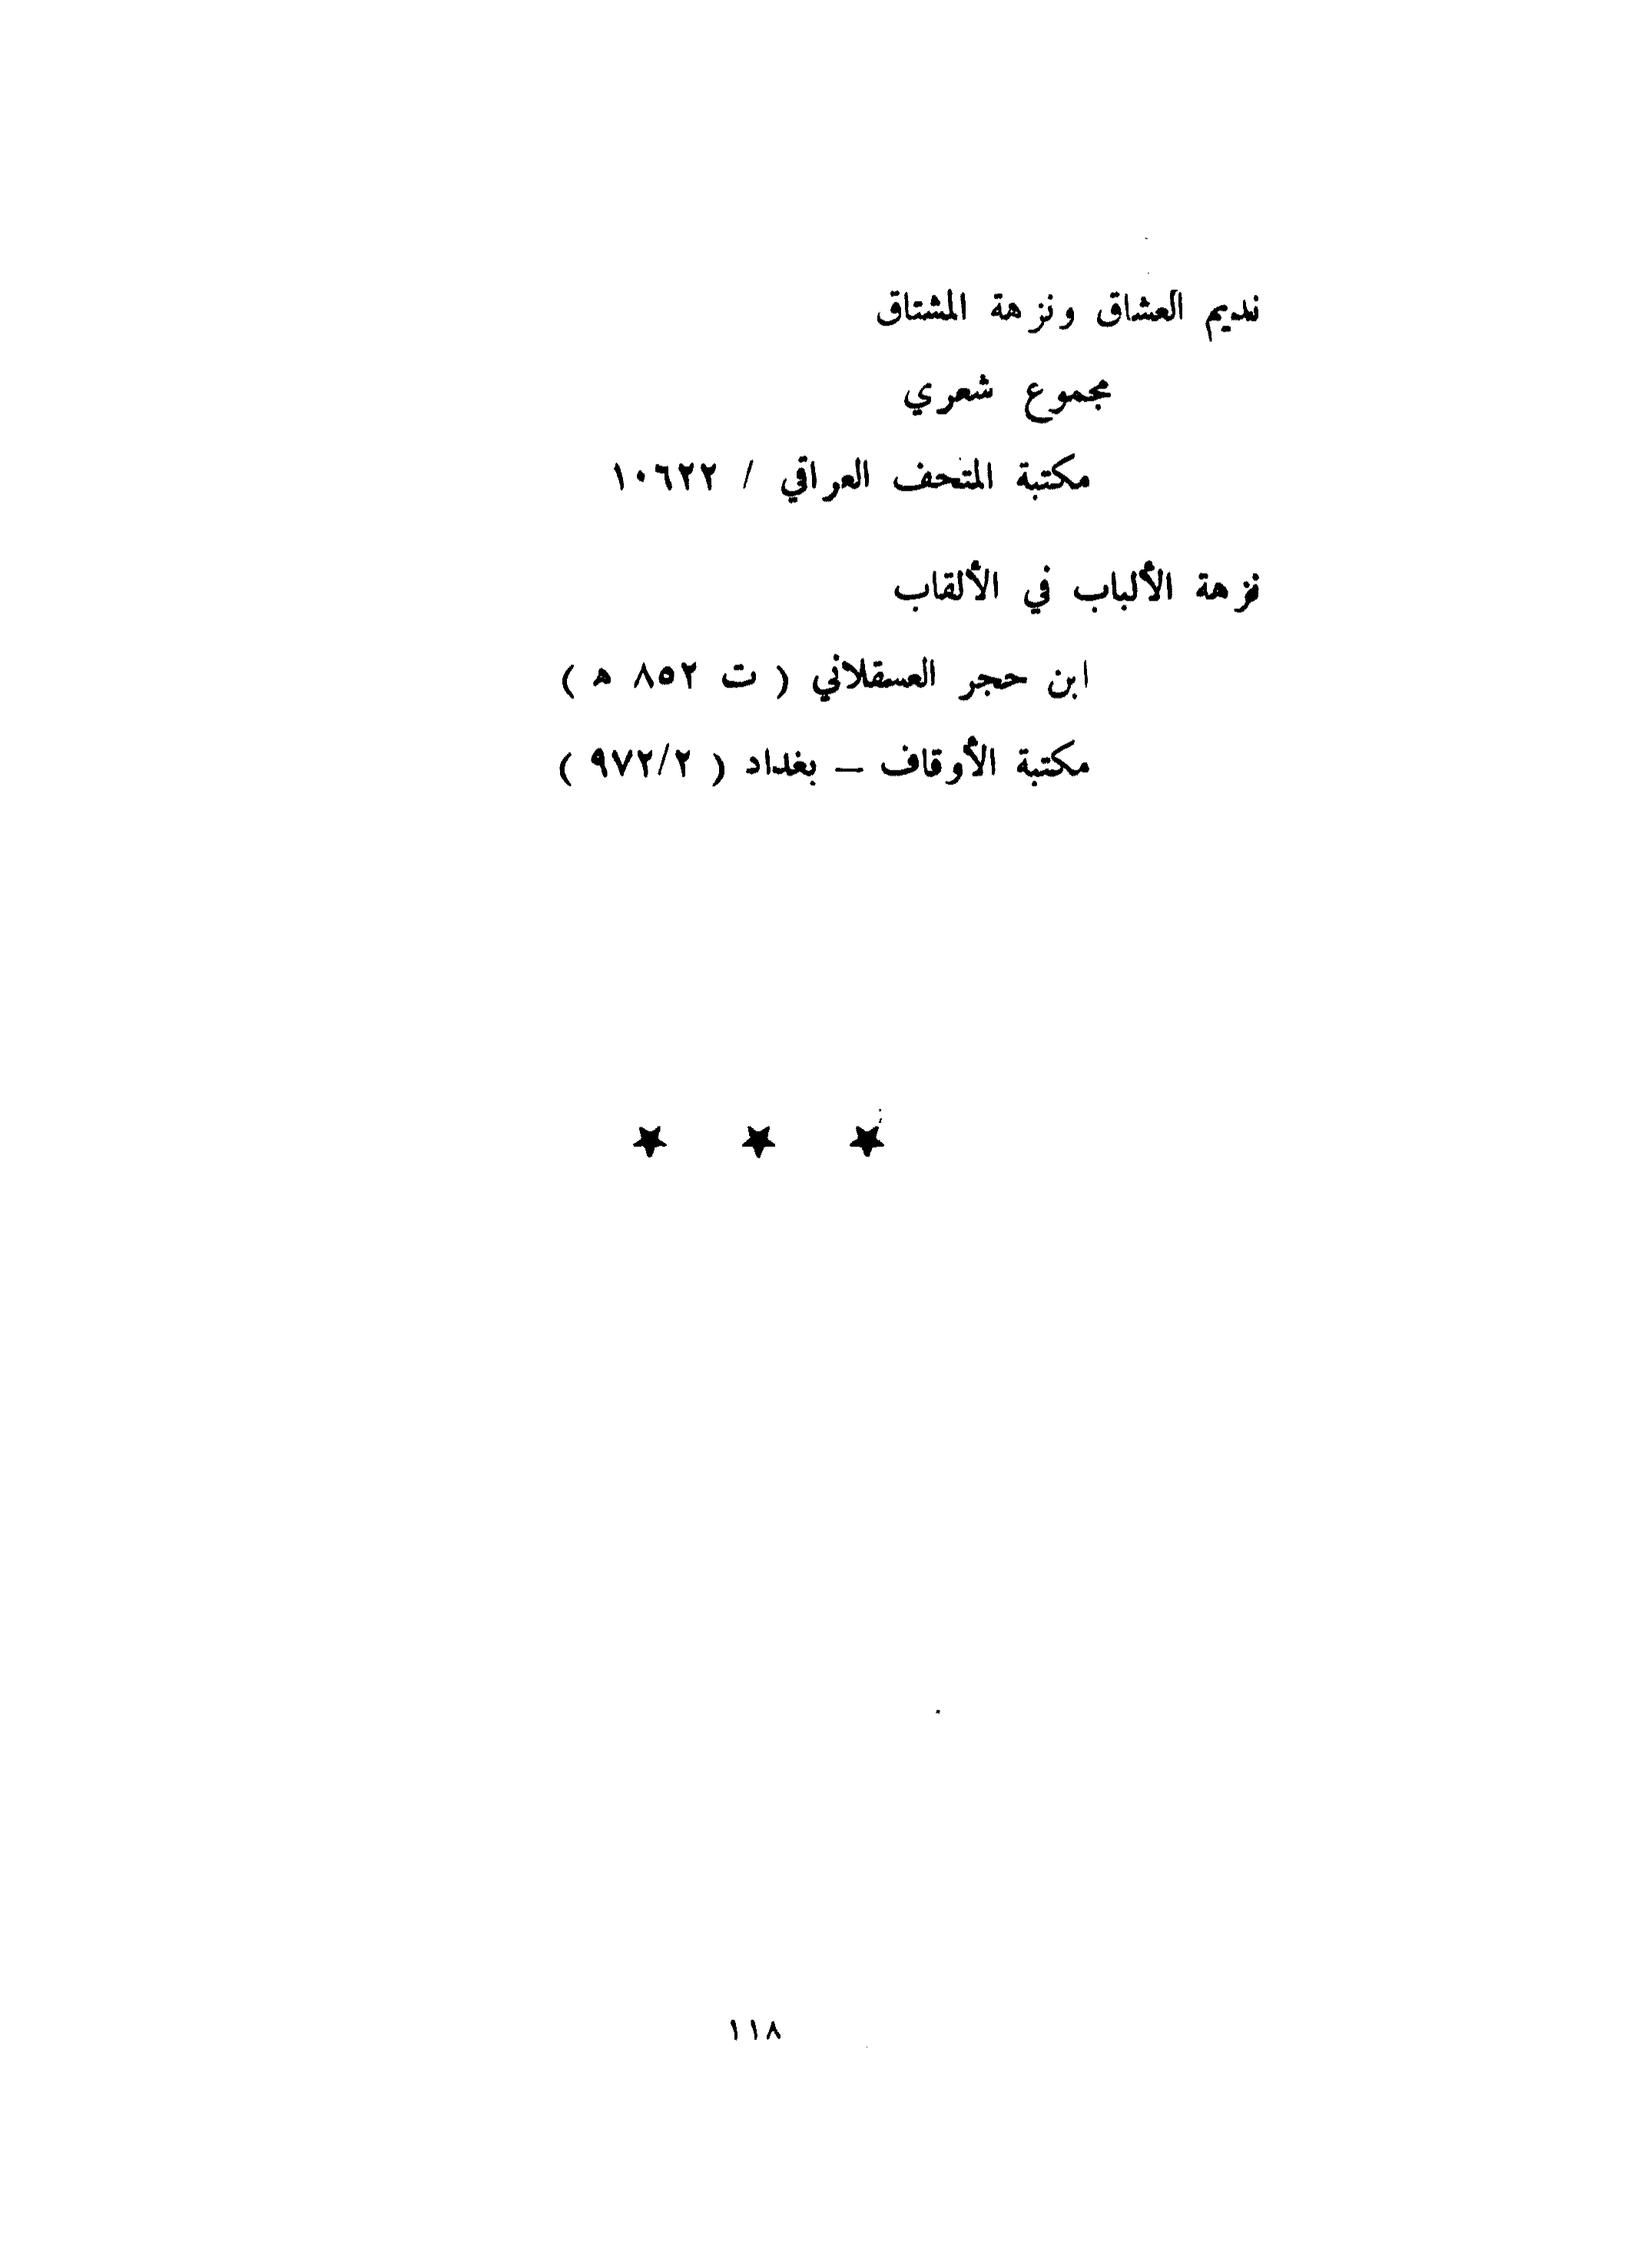 نديم العشاق ونزهة المشتاق
مجموع شعري
مكتبة المتحف العراقي / ١٠٦٢٢
نزهة الألباب في الألقاب
ابن حجر العسقلاني ( ت ٨٥٢ ه )
مكتبة الأوقاف – بغداد ( ٩٧٢/٢ )
★ ★ ★
١١٨